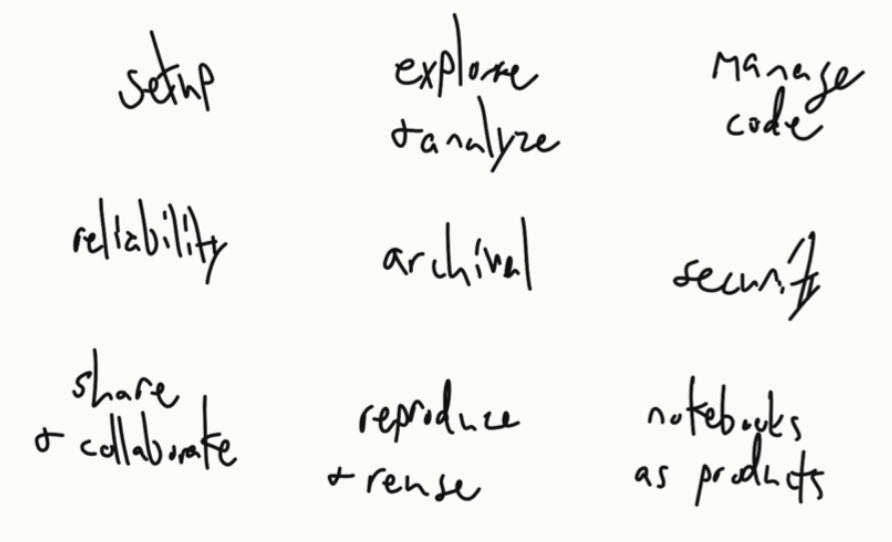 setup
explore
+ analyze
Manage
code
reliability
archival
security
share
+ collaborate
reproduce
+ reuse
notebooks
as products